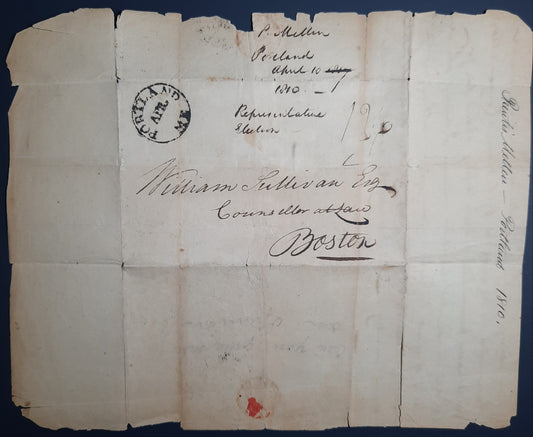 P. Mellen
Portland
April 10
1810.
Representative
Election
PORTLAND ME
APR.
12½
William Sullivan Esq
Counseller at Law
Boston
Prentiss Mellen — Portland 1810.